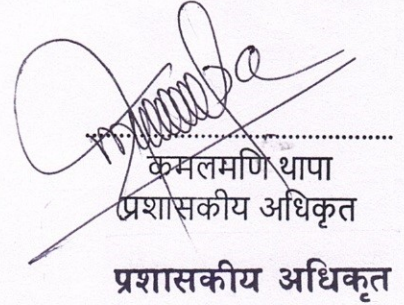 कमलमणि थापा
प्रशासकीय अधिकृत
प्रशासकीय अधिकृत